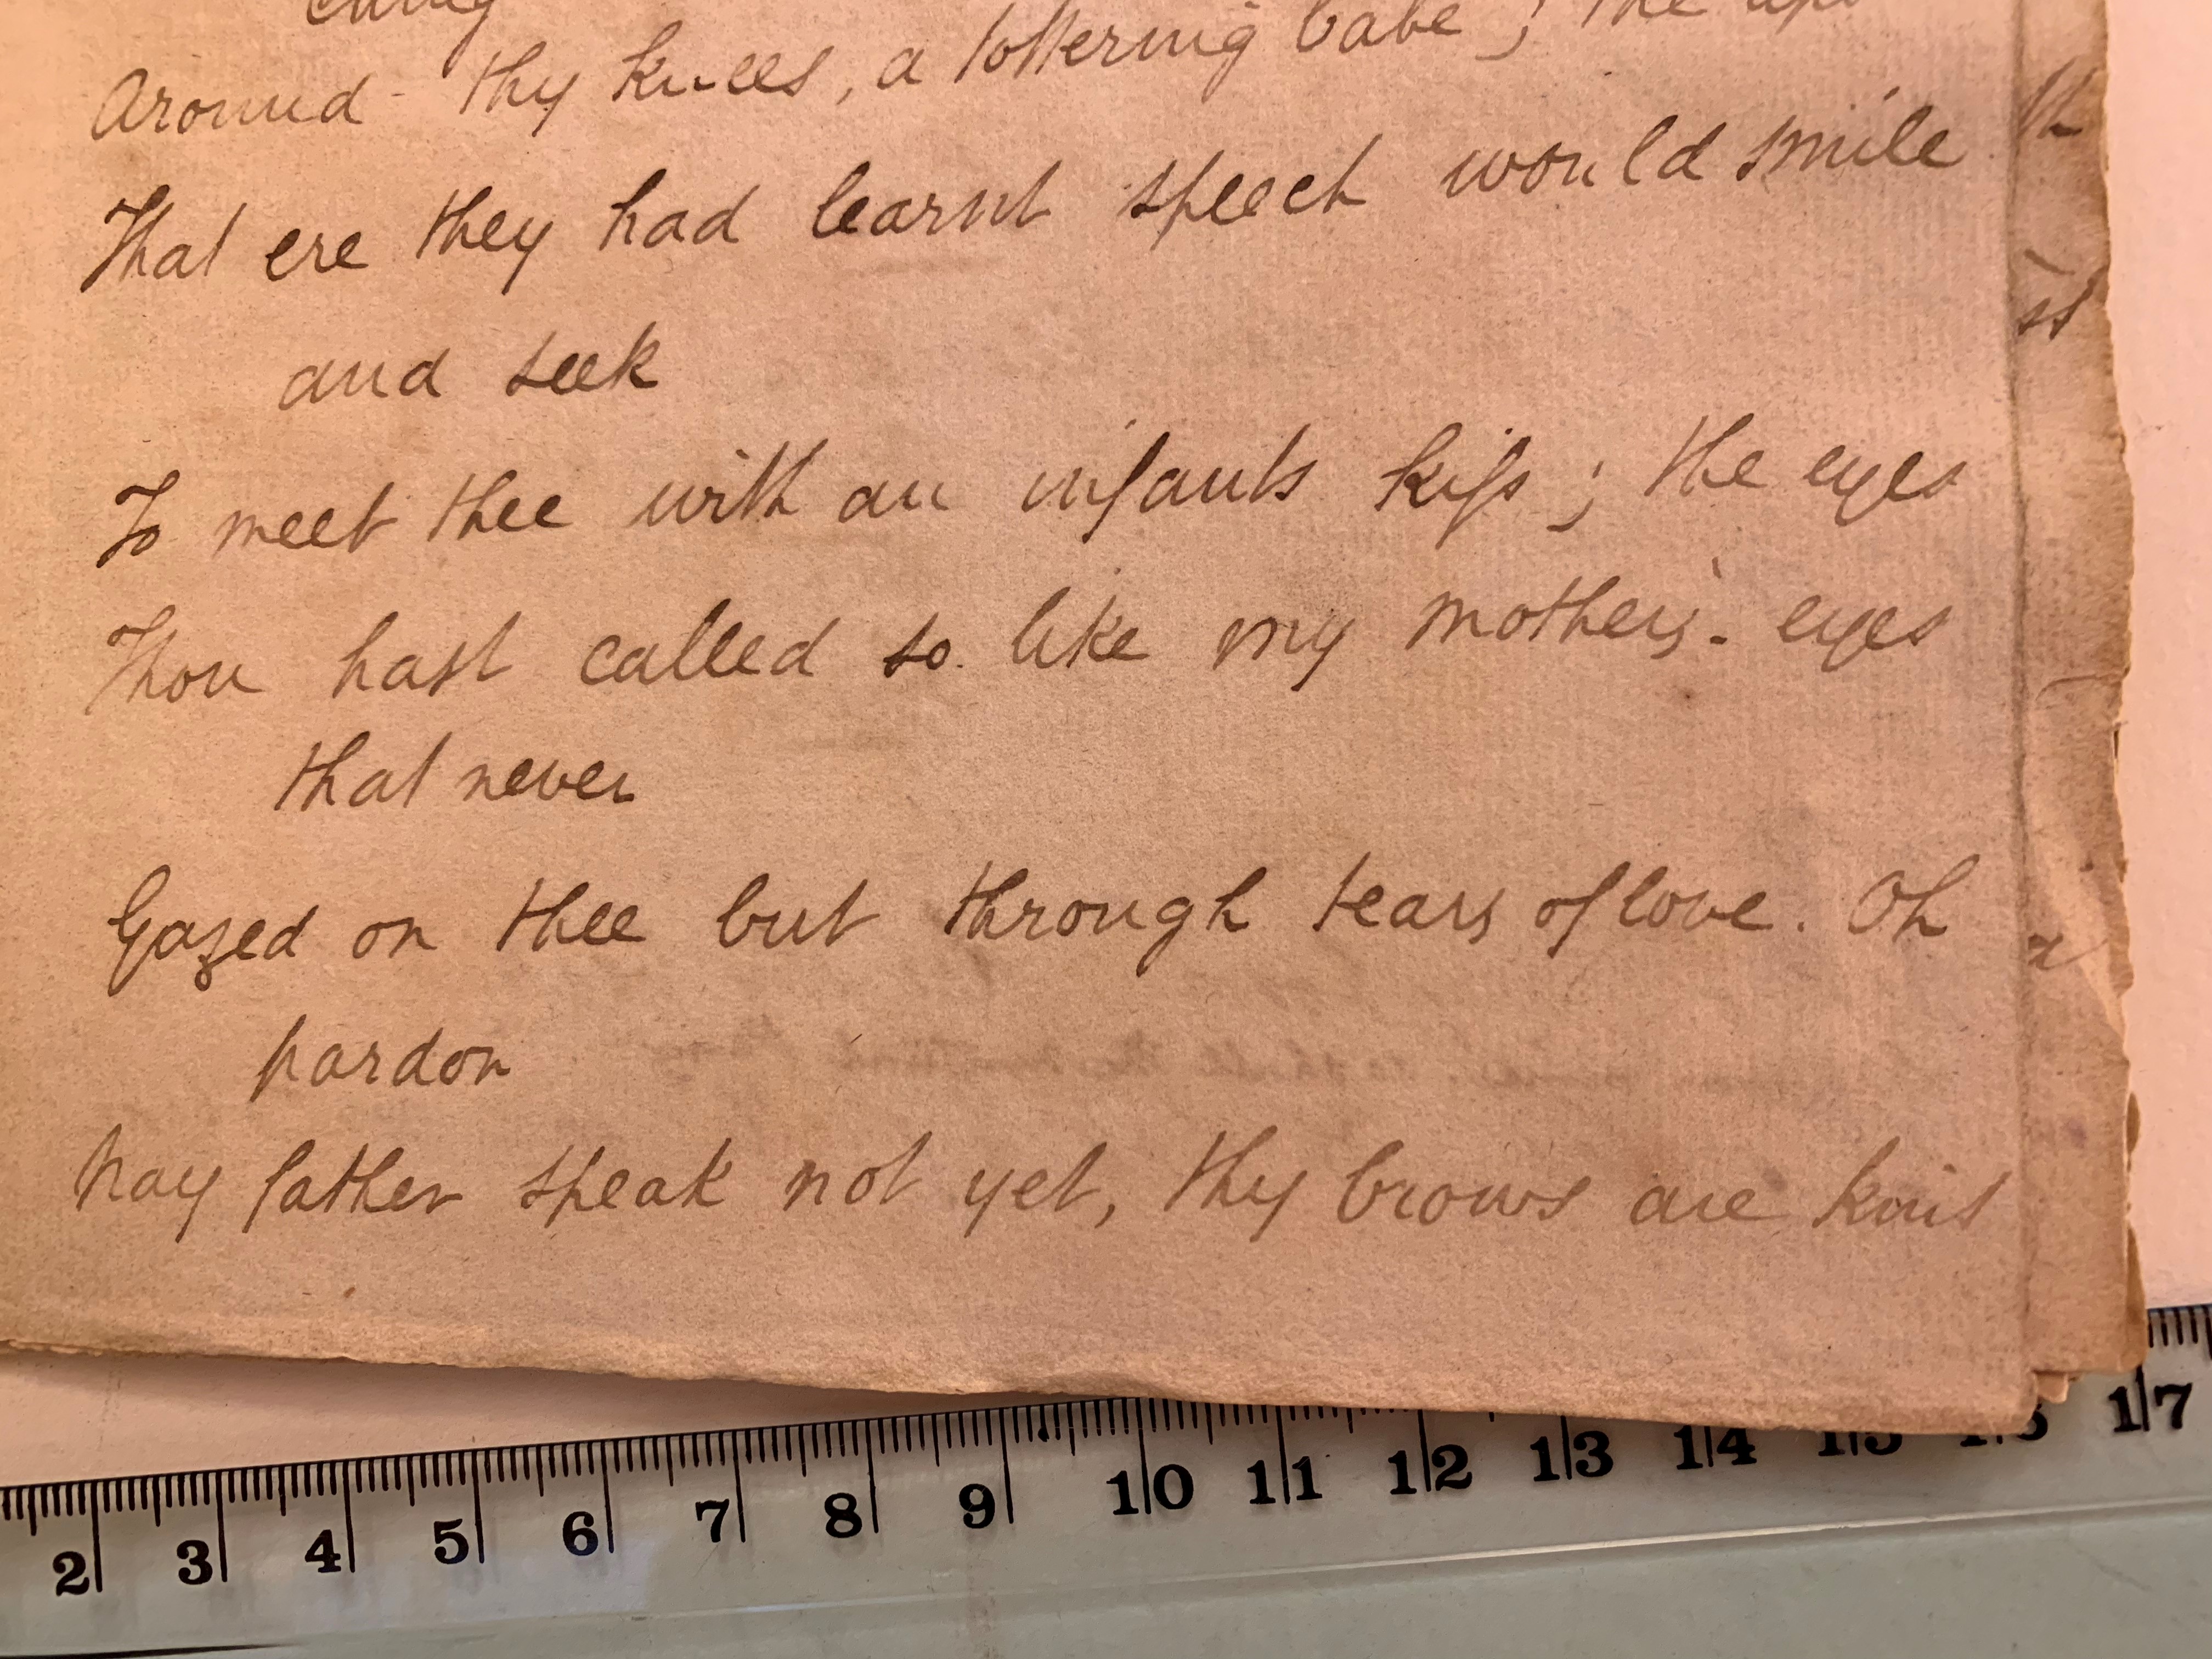 clung
Around - thy knees, a tottering babe; the lips
That ere they had learnt speech would smile
and seek
To meet thee with an infants kiss; the eyes
Thou hast called so like my mother's - eyes
that never
Gazed on thee but through tears of love. Oh
pardon
Nay father speak not yet, thy brows are knit
2 3 4 5 6 7 8 9 10 11 12 13 14 15 16 17